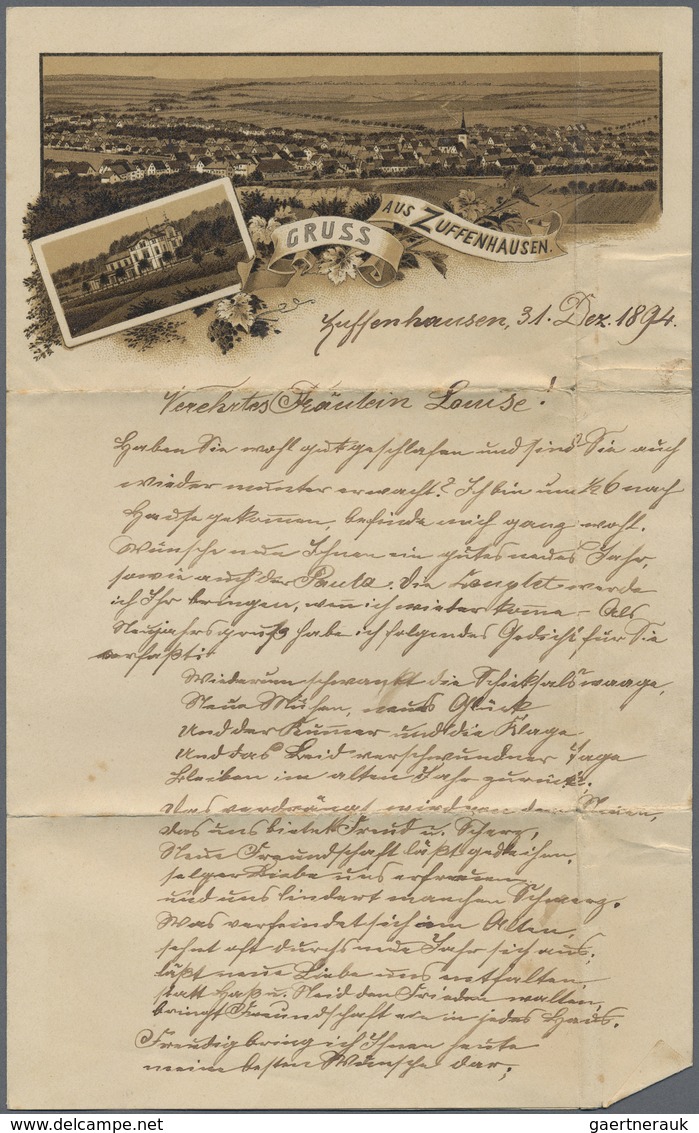 GRUSS AUS ZUFFENHAUSEN.
Zuffenhausen, 31. Dez. 1894.
Verehrtes Fräulein Louise!
Haben Sie wohl gut geschlafen und sind Sie auch
wieder munter erwacht? Ich bin um ½6 nach
Hause gekommen, befinde mich ganz wohl.
Wünsche nun Ihnen ein gutes neues Jahr,
sowie auch der Paula. Die Couplet werde
ich Ihr bringen, wen̄ ich wieder kom̄e – Als
Neujahrsgruß habe ich folgendes Gedicht für Sie
verfaßt:
Wiederum schwankt die Schicksalswaage,
Neue Mühen, neues Glück
Und der Kum̄er und die Klage
Und das Leid verschwundner Tage
Bleiben im alten Jahr zurück.
Das verdrängt wird von dem Neuen,
das uns bietet Freud u. Scherz,
Neue Freundschaft läßt gedeihen,
selger Liebe uns erfreuen
und uns lindert manchen Schmerz.
Was verfeindet sich im Alten,
sehnt oft durchs neue Jahr sich aus,
läßt neue Liebe uns entfalten
statt Haß u. Neid den Frieden walten,
bringt Freundschaft in jedes Haus.
Freudig bring ich Ihnen heute
meine besten Wünsche dar;
gaertnerauk